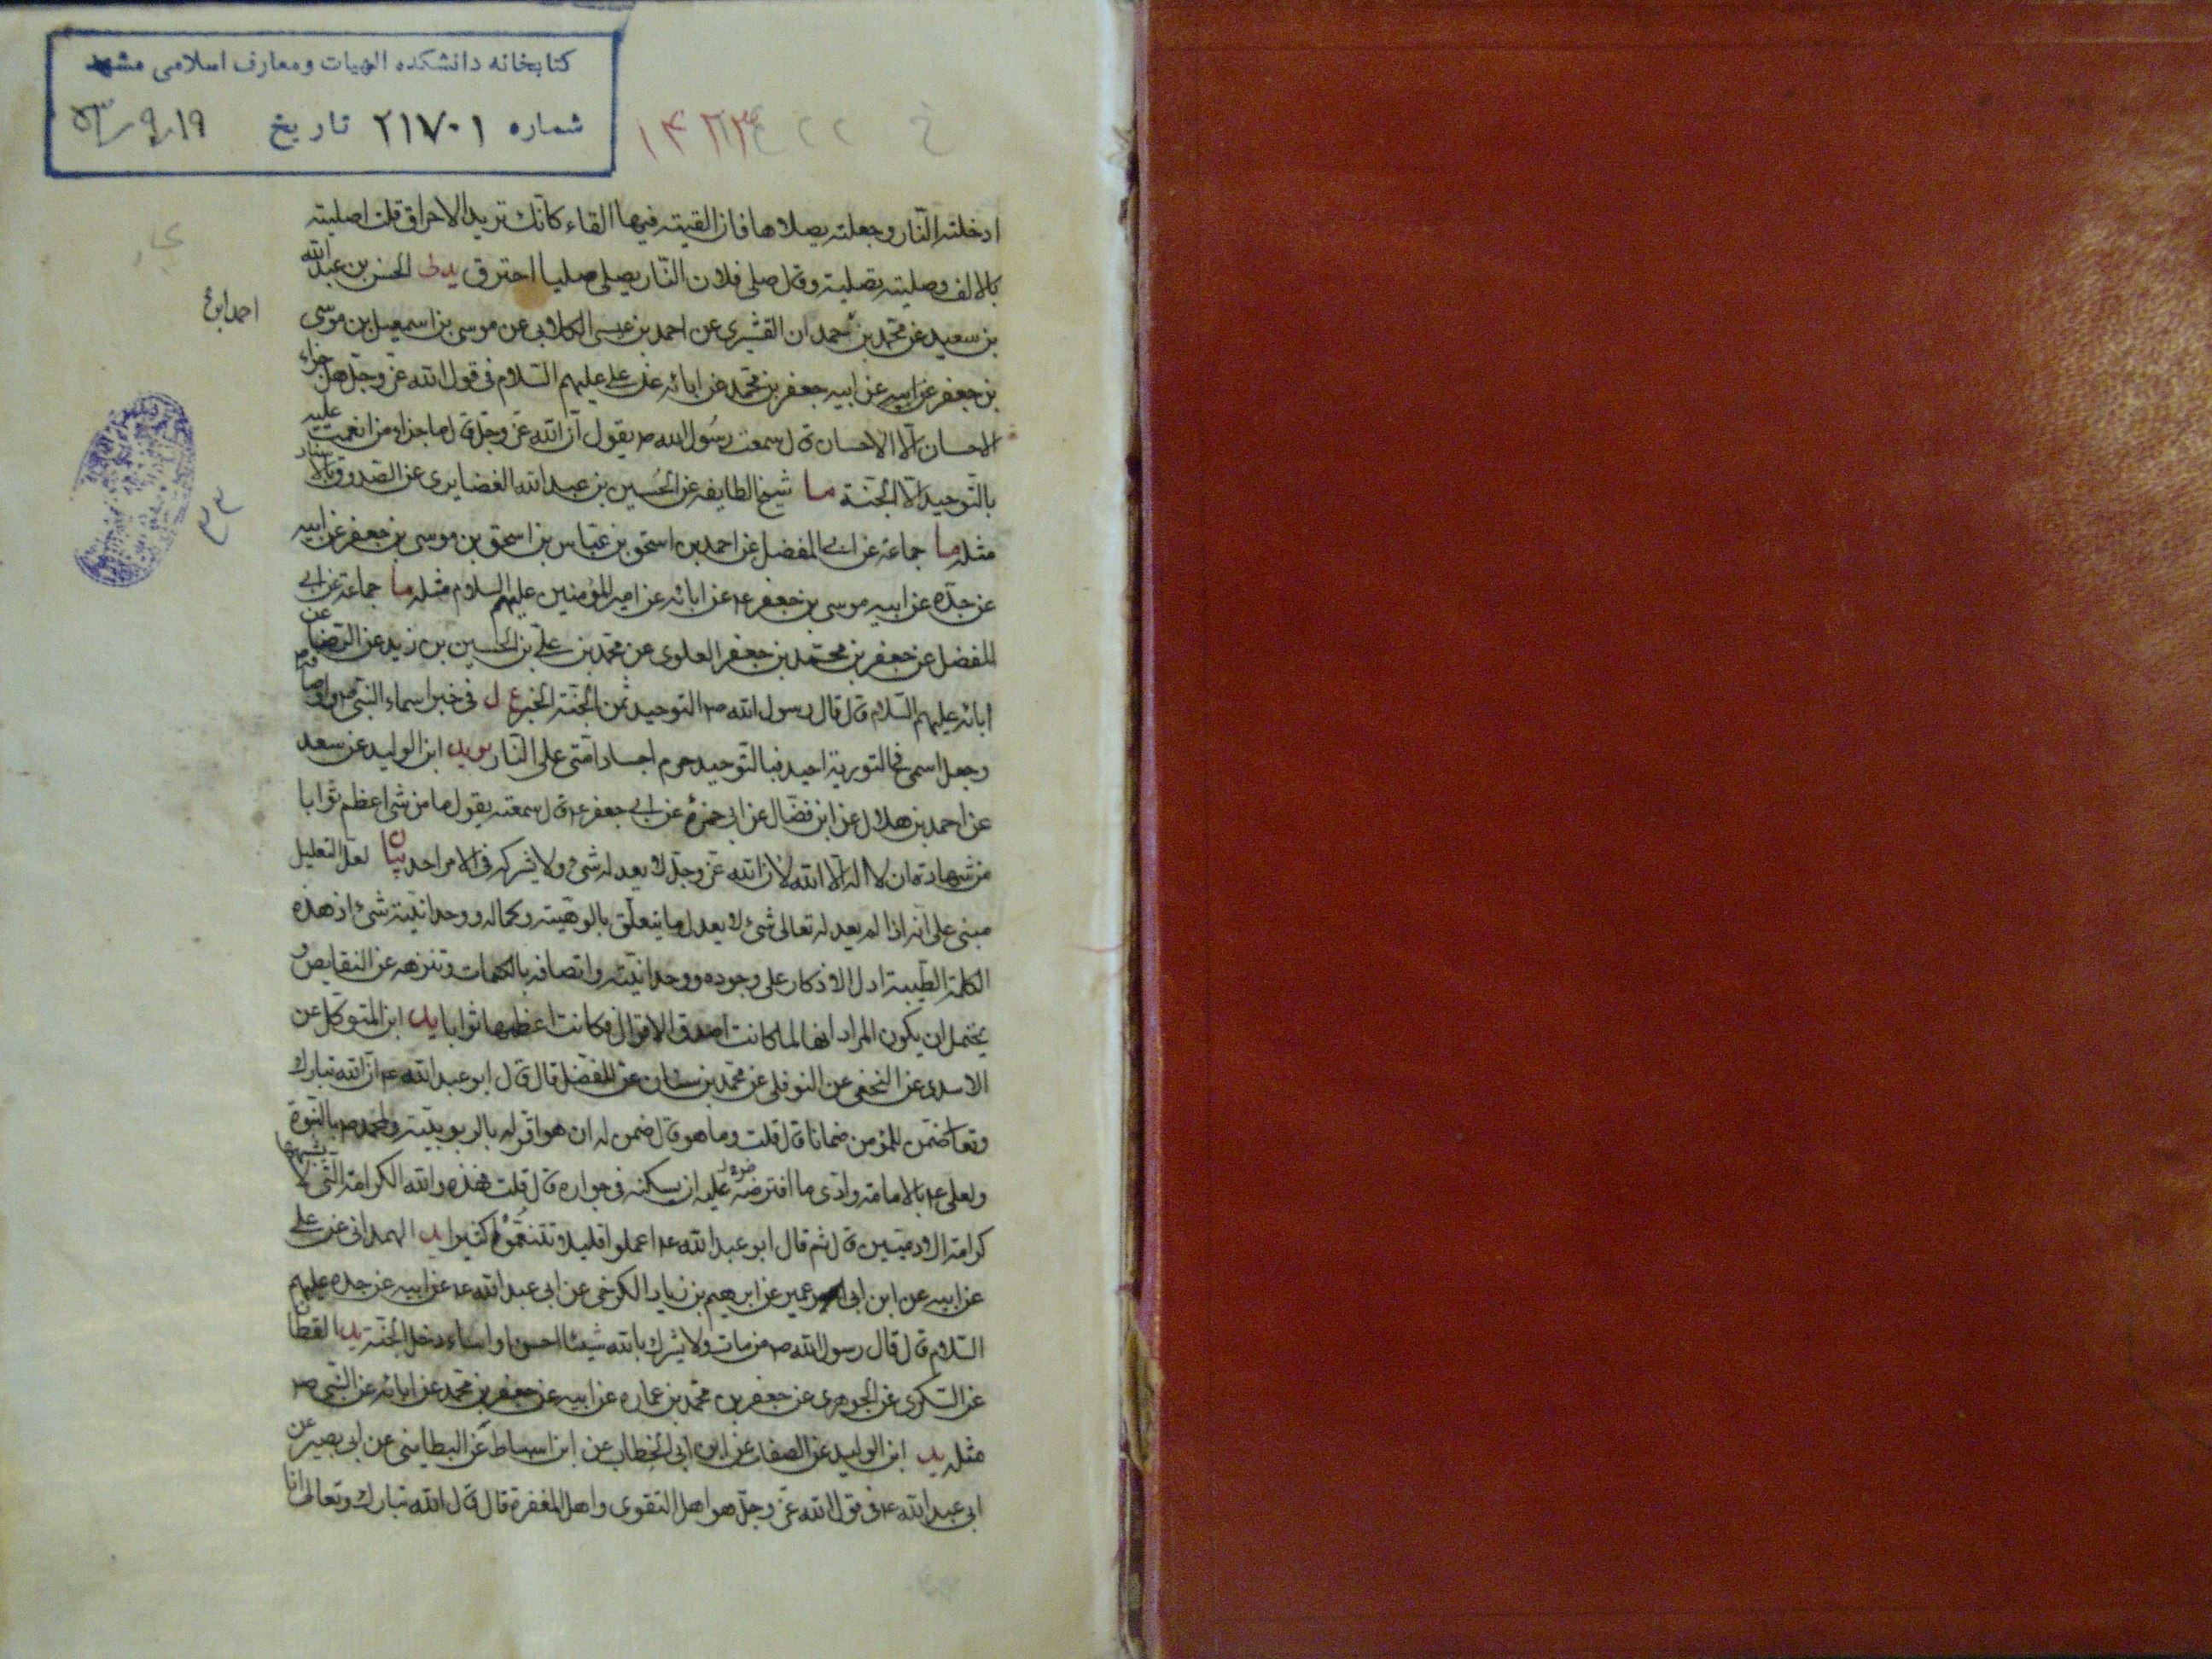 كتابخانه دانشكده الهيات ومعارف اسلامى مشهد
شماره ٢١٧٠١ تاريخ ٥٣/٩/١٩
ادخلته النّار وجعلته يصلاها فان القيته فيها القاء كانّك تريد الاحراق قلت اصليته
بالالف وصليته تصلية وقل صلى فلان النّار يصلى صليا احترق يد لى الحسن بن عبد الله
بن سعيد عن محمّد بن احمد ان القشيرى عن احمد بن عيسى الكلابى عن موسى بن اسمعيل بن موسى
بن جعفر عن ابيه عن ابيه جعفر بن محمّد عن ابائه عن على عليهم السّلام فى قول الله عزّ وجلّ هل جزاء
الاحسان الّا الاحسان قال سمعت رسول الله ص يقول انّ الله عزّ وجلّ قال ما جزاء من انعمت عليه
بالتّوحيد الّا الجنّة ما شيخ الطايفه عن الحسين بن عبد الله الغضايرى عن الصّدوق بالاسناد
مثله ما جماعة عن ابى المفضل عن احمد بن اسحق بن عبّاس بن اسحق بن موسى بن جعفر عن ابيه
عن جدّه عن ابيه موسى بن جعفر ع عن ابائه عن امير المؤمنين عليهم السلام مثله ما جماعة عن ابى
المفضل عن جعفر بن محمّد بن جعفر العلوى عن محمّد بن على بن الحسين بن زيد عن الرّضا عن
ابائه عليهم السّلام قال قال رسول الله ص التوحيد ثمن الجنّة الخبر ع ل فى خبر اسماء النبىّ ص واوصافه
وجعل اسمى فى التورية احيد فبالتّوحيد حرم اجساد امّتى على النّار ثو يد ابن الوليد عن سعد
عن احمد بن هلال عن ابن فضّال عن ابى حمزة عن ابى جعفر ع قال سمعته يقول ما من شئ اعظم ثوابا
من شهادة ان لا اله الّا الله لانّ الله عزّ وجلّ لا يعدله شئ ولا يشركه فى الامر احد بيان لعلّ التعليل
مبنى على انّه اذا لم يعدله تعالى شئ لا يعدل ما يتعلّق بالوهيّته وكماله ووحدانيّته شئ اذ هذه
الكلمة الطيّبة ادل الاذكار على وجوده ووحدانيّته واتصافه بالكمالات وتنزهه عن النقايص و
يحتمل ان يكون المراد انها لما كانت اصدق الاقوال فكانت اعظمها ثوابا يد ابن المتوكّل عن
الاسدى عن النخعى عن النوفلى عن محمّد بن سنان عن المفضّل قال قال ابو عبد الله ع انّ الله تبارك
وتعا ضمن للمؤمن ضمانا قال قلت وما هو قال ضمن له ان هو اقرّ له بالربوبيّة ولمحمد ص بالنبوّة
ولعلى ع بالامامة وادّى ما افترضه عليه ان يسكنه فى جواره قال قلت هذه والله الكرامة الّتى لا يشبهها
كرامة الادميّين قال ثم قال ابو عبد الله ع اعملوا قليلا تتنعّموا كثيرا يد الهمدانى عن على
عن ابيه عن ابن ابى عمير عن ابرهيم بن زياد الكرخى عن ابى عبد الله ع عن ابيه عن جده عليهم
السّلام قال قال رسول الله ص من مات ولا يشرك بالله شيئا احسن او اساء دخل الجنّة يد القطان
عن السّكرى عن الجوهرى عن جعفر بن محمّد بن عماره عن ابيه عن جعفر بن محمّد عن ابائه عن النّبى ص
مثله يد ابن الوليد عن الصفار عن ابن ابى الخطاب عن ابن اسباط عن البطاينى عن ابى بصير عن
ابى عبد الله ع فى قول الله عزّ وجلّ هو اهل التقوى واهل المغفرة قال قال الله تبارك وتعالى انا